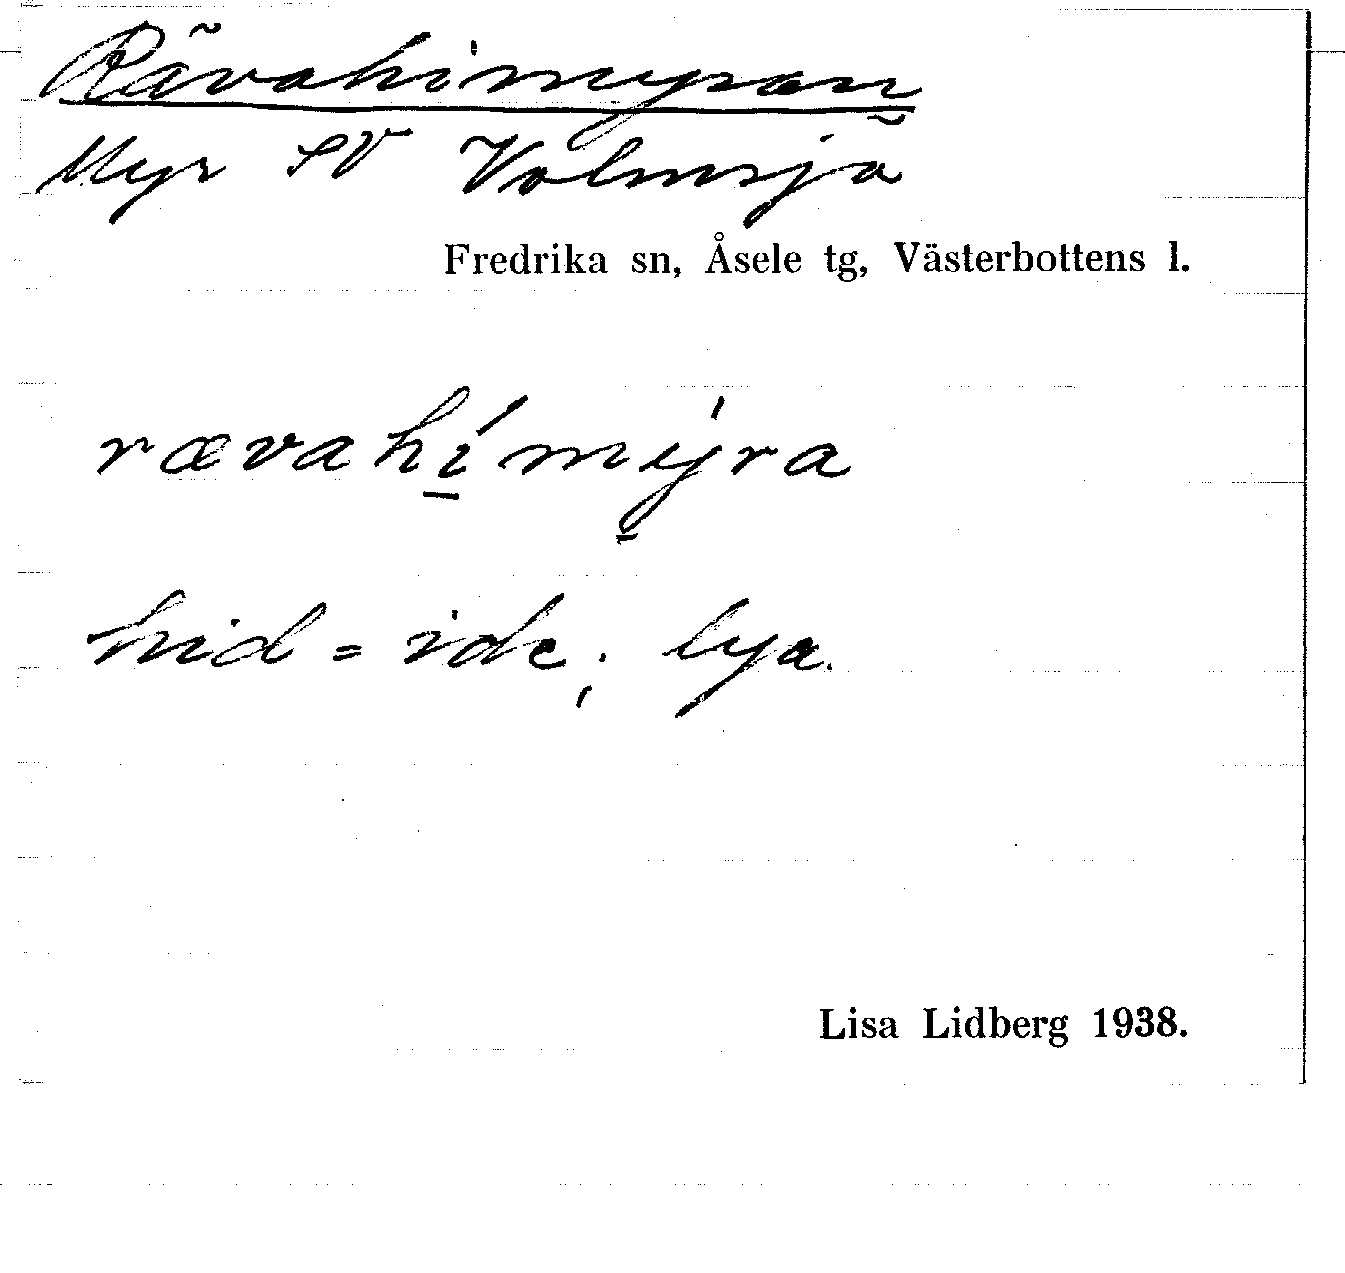 Rävahimyran
Myr SV Volmsjö
Fredrika sn, Åsele tg, Västerbottens l.
rævahí̱mý̱ra
hid = ide; lya.
Lisa Lidberg 1938.